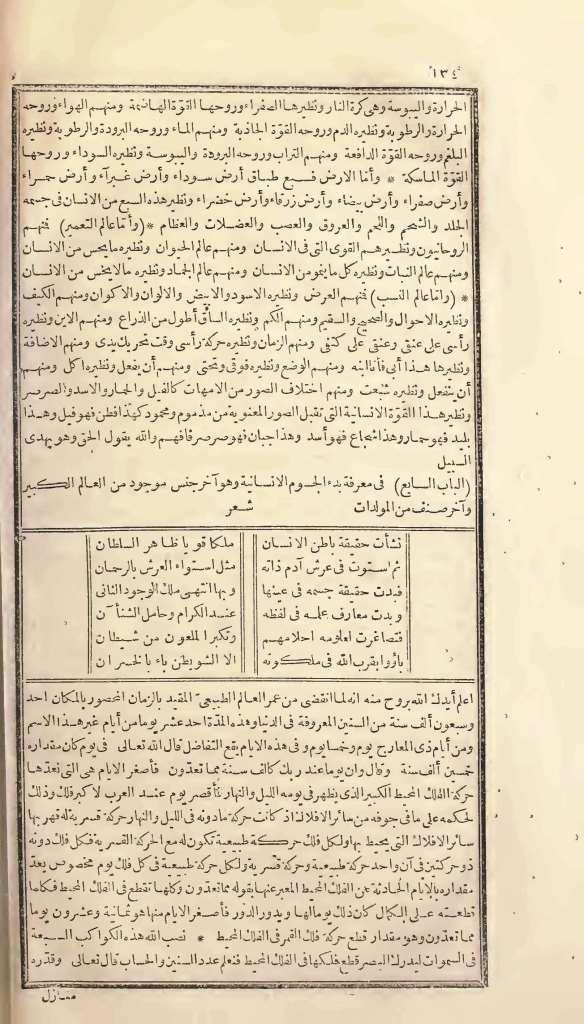 ١٣٤
الحرارة واليبوسة وهى كرة النار ونظيرها الصفراء وروحها القوّة الهاضمة ومنهم الهواء وروحه
الحرارة والرطوبة ونظيره الدم وروحه القوّة الجاذبة ومنهم الماء وروحه البرودة والرطوبة ونظيره
البلغم وروحه القوّة الدافعة ومنهم التراب وروحه البرودة واليبوسة ونظيره السوداء وروحها
القوّة الماسكة * وأمّا الارض فسبع طباق أرض سوداء وأرض غبرآء وأرض حمراء
وأرض صفراء وأرض بيضاء وأرض زرقاء وأرض خضراء ونظير هذه السبع من الانسان فى جسمه
الجلد والشحم واللحم والعروق والعصب والعضلات والعظام * (وأمّا عالم التعمير) فمنهم
الروحانيون ونظيرهم القوى التى فى الانسان ومنهم عالم الحيوان ونظيره ما يحس من الانسان
ومنهم عالم النبات ونظيره كل ما ينمو من الانسان ومنهم عالم الجماد ونظيره ما لا يحس من الانسان
* (وامّا عالم النسب) فمنهم العرض ونظيره الاسود والابيض والالوان والاكوان ومنهم الكيف
ونظيره الاحوال والصحيح والسقيم ومنهم الكم ونظيره الساق أطول من الذراع ومنهم الاين ونظيره
رأسى على عنقى وعنقى على كتفى ومنهم الزمان ونظيره حركة رأسى وقت تحريك يدى ومنهم الاضافة
ونظيرها هذا أبى فأنا ابنه ومنهم الوضع ونظيره فوقى وتحتى ومنهم أن يفعل ونظيره أكل ومنهم
أن ينفعل ونظيره شبعت ومنهم اختلاف الصور من الامهات كالفيل والحمار والاسد والصرصر
ونظير هذا القوّة الانسانية التى تقبل الصور المعنوية من مذموم ومحمود كهذا فطن فهو فيل وهذا
بليد فهو حمار وهذا شجاع فهو أسد وهذا جبان فهو صرصر فافهم والله يقول الحق وهو يهدى
السبيل
(الباب السابع) فى معرفة بدء الجسوم الانسانية وهو آخر جنس موجود من العالم الكبير
وآخر صنف من المولدات شعر
نشأت حقيقة باطن الانسان ملكا قويا ظاهر السلطان
ثم استوت فى عرش آدم ذاته مثل استواء العرش بالرحمان
فبدت حقيقة جسمه فى عينها وبها انتهى ملك الوجود الثانى
وبدت معارف علمه فى لفظه عند الكرام وحامل الشنآن
فتصاغرت لعلومه احلامهم وتكبر الملعون من شيطان
باؤا بقرب الله فى ملكوته الا الشويطن باء بالخسران
اعلم أيدك الله بروح منه انه لما انقضى من عمر العالم الطبيعىّ المقيد بالزمان المحصور بالمكان احد
وسبعون ألف سنة من السنين المعروفة فى الدنيا وهذه المدّة احد عشر يوما من أيام غير هذا الاسم
ومن أيام ذى المعارج يوم وخمسا يوم وفى هذه الايام يقع التفاضل قال الله تعالى فى يوم كان مقداره
خمسين ألف سنة وقال وان يوما عند ربك كالف سنة مما تعدّون فأصغر الايام هى التى نعدّها
حركة الفلك المحيط الكبير الذى يظهر فى يومه الليل والنهار فأقصر يوم عند العرب لا كبر فلك وذلك
لحكمه على ما فى جوفه من سائر الافلاك اذ كانت حركة ما دونه فى الليل والنهار حركة قسرية له قهر بها
سائر الافلاك التى يحيط بها ولكل فلك حركة طبيعية تكون له مع الحركة القسرية فكل فلك دونه
ذو حركتين فى آن واحد حركة طبيعية وحركة قسرية ولكل حركة طبيعية فى كل فلك يوم مخصوص يعدّ
مقداره بالايام الحادثة عن الفلك المحيط المعبر عنها بقوله مما تعدّون وكلها تقطع فى الفلك المحيط فكلما
قطعته على الكمال كان ذلك يوما لها ويدور الدور فأصغر الايام منها هو ثمانية وعشرون يوما
مما تعدّون وهو مقدار قطع حركة فلك القمر فى الفلك المحيط * نصب الله هذه الكواكب السبعة
فى السموات ليدرك البصر قطع فلكها فى الفلك المحيط فنعلم عدد السنين والحساب قال تعالى وقدّره
منازل